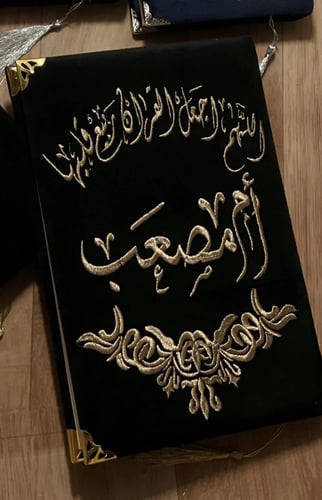 اللهم اجعل القرآن ربيع قلبها
أم مصعب